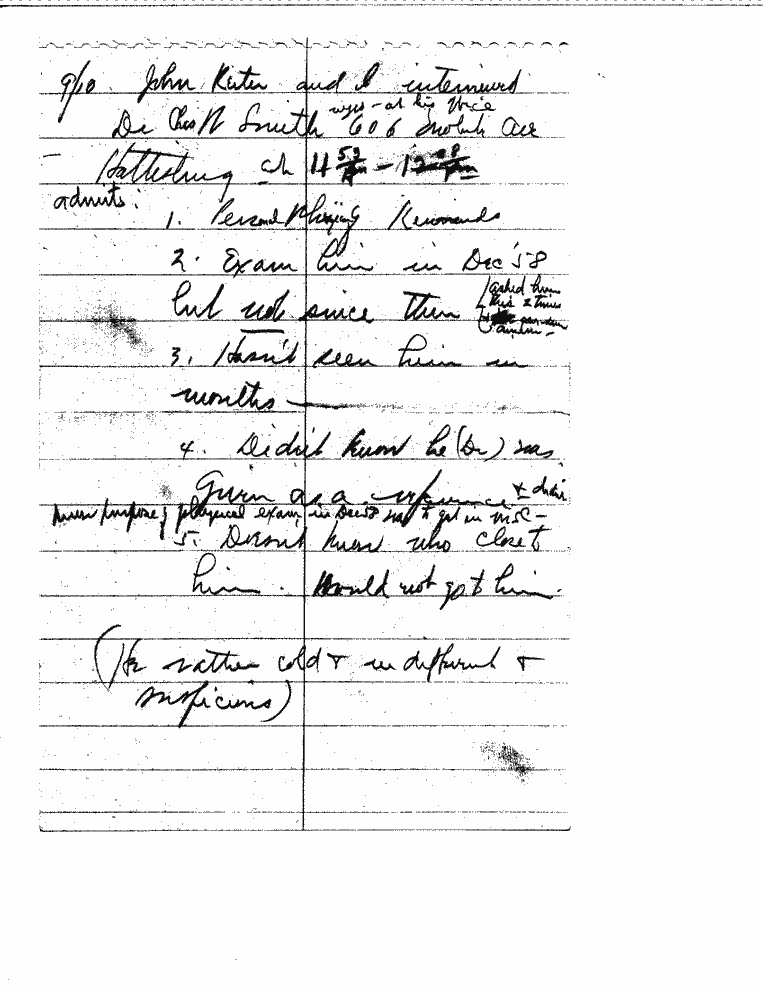 9/10 John Reiter and I interviewed
negro - at his office
Dr Chas W Smith 606 Mobile Ave
- Hattiesburg 11 59 am - 12 08 pm
admits:
1. Personal Physician Kennards
2. Exam him in Dec '58
but not since then
asked him
this 2 times
3. Hasn't seen him in
months
4. Didn't know he (Dr) was
Given as a reference
purpose of physical exam in Dec 58 was to get in MSC -
5. Doesn't know who closet
him. Would not get him.
(He rather cold & indifferent &
suspicious)